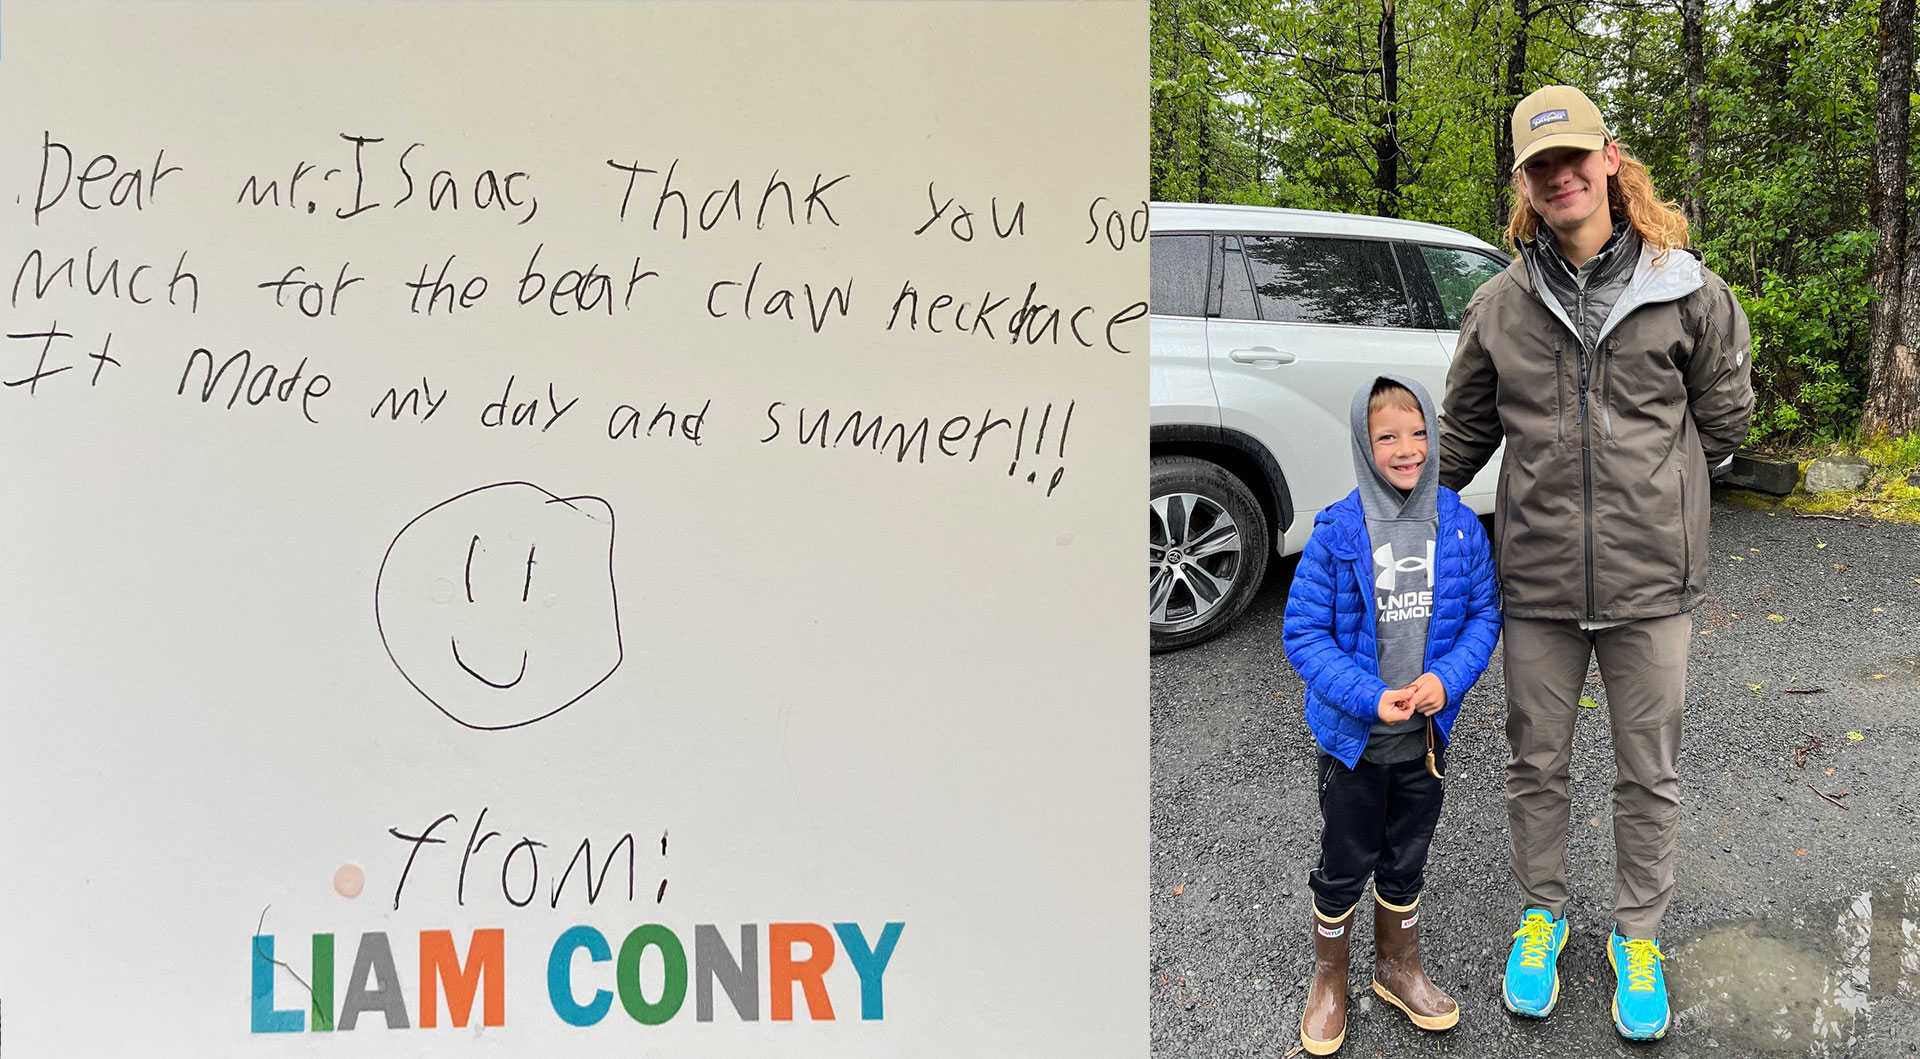 Dear Mr. Isaac, Thank you soo
much for the bear claw necklace
It made my day and summer!!!
from:
LIAM CONRY
patagonia
UNDE
ARMOU
XTRATUF